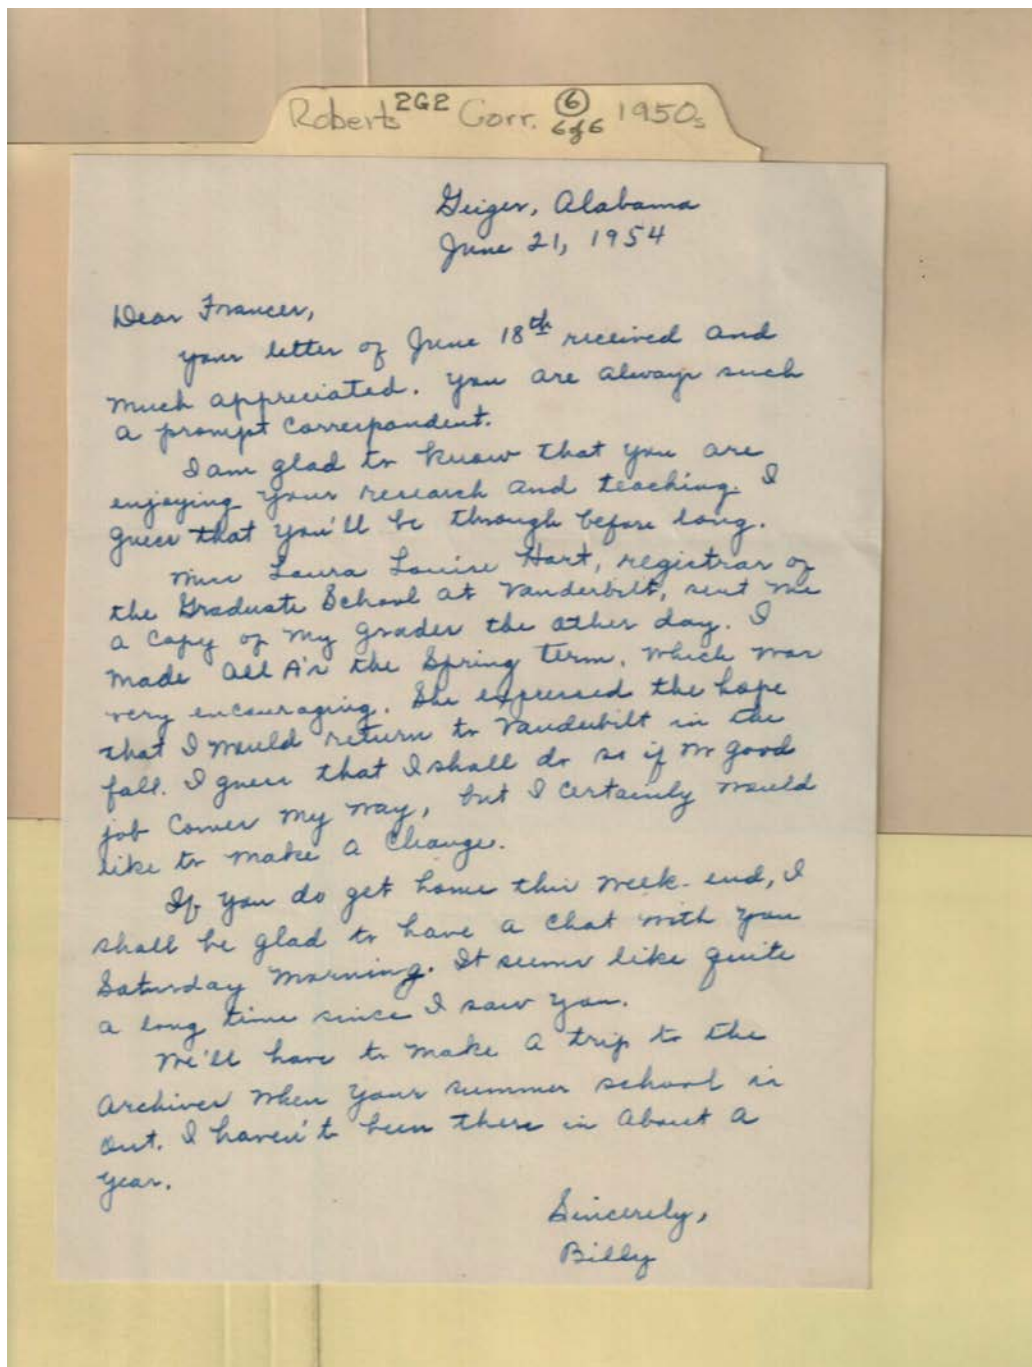 Roberts 2G2 Corr. 6 1950s
6 of 6
Geiger, Alabama
June 21, 1954
Dear Frances,
Your letter of June 18th received and
much appreciated. You are always such
a prompt correspondent.
I am glad to know that you are
enjoying your research and teaching. I
guess that you'll be through before long.
Miss Laura Louise Hart, registrar of
the Graduate School at Vanderbilt, sent me
a copy of my grades the other day. I
made all A's the Spring term, which was
very encouraging. She expressed the hope
that I would return to Vanderbilt in the
fall. I guess that I shall do so if no good
job comes my way, but I certainly would
like to make a change.
If you do get home this week-end, I
shall be glad to have a chat with you
Saturday morning. It seems like quite
a long time since I saw you.
We'll have to make a trip to the
Archives when your summer school is
out. I haven't been there in about a
year.
Sincerely,
Billy